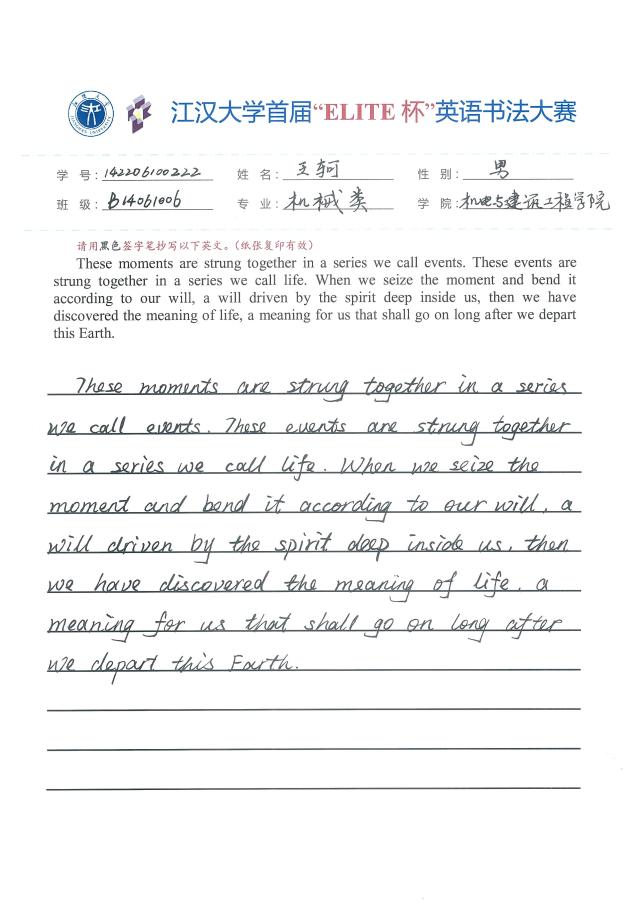 江汉大学首届“ELITE 杯”英语书法大赛
学 号：142206100222 姓 名：王轲 性 别：男
班 级：B14061006 专 业：机械类 学 院：机电与建筑工程学院
请用黑色签字笔抄写以下英文。（纸张复印有效）
These moments are strung together in a series we call events. These events are
strung together in a series we call life. When we seize the moment and bend it
according to our will, a will driven by the spirit deep inside us, then we have
discovered the meaning of life, a meaning for us that shall go on long after we depart
this Earth.
These moments are strung together in a series
we call events. These events are strung together
in a series we call life. When we seize the
moment and bend it according to our will, a
will driven by the spirit deep inside us, then
we have discovered the meaning of life, a
meaning for us that shall go on long after
we depart this Earth.